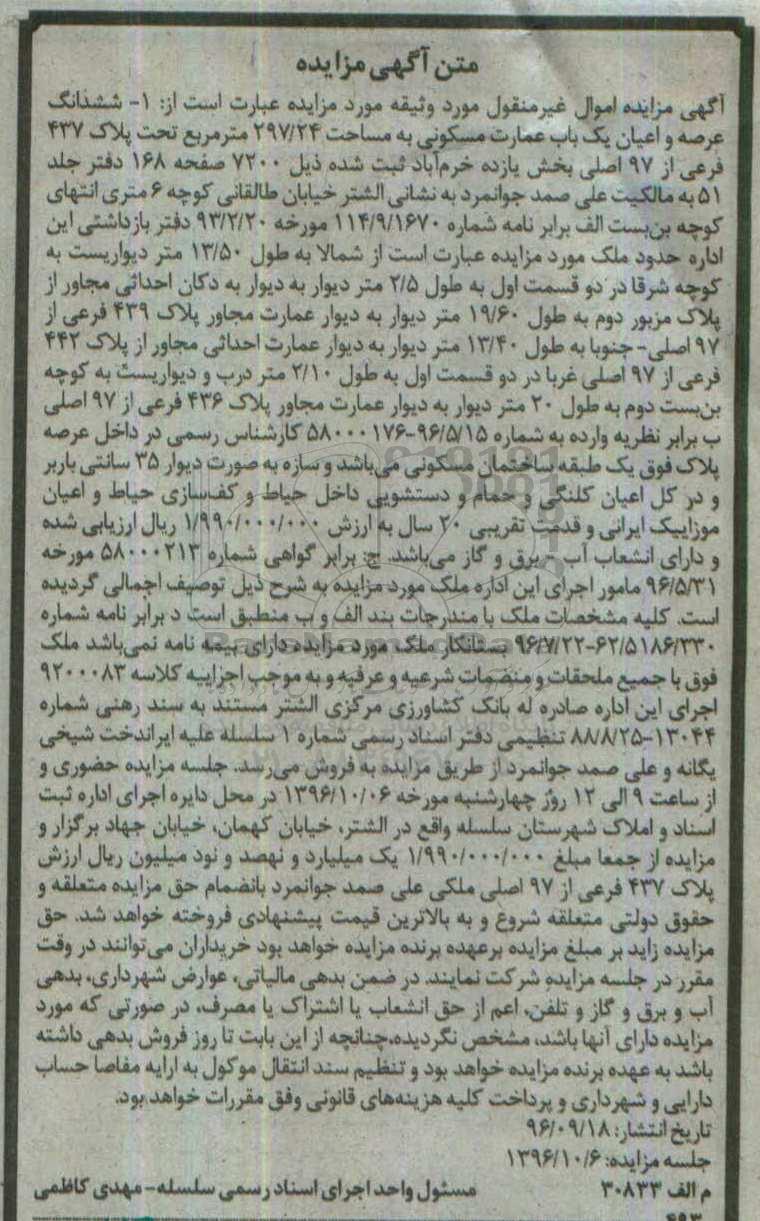 متن آگهی مزایده
آگهی مزایده اموال غیرمنقول مورد وثیقه مورد مزایده عبارت است از: ۱- ششدانگ
عرصه و اعیان یک باب عمارت مسکونی به مساحت ۲۹۷/۲۴ مترمربع تحت پلاک ۴۳۷
فرعی از ۹۷ اصلی بخش یازده خرم‌آباد ثبت شده ذیل ۷۲۰۰ صفحه ۱۶۸ دفتر جلد
۵۱ به مالکیت علی صمد جوانمرد به نشانی الشتر خیابان طالقانی کوچه ۶ متری انتهای
کوچه بن‌بست الف برابر نامه شماره ۱۱۴/۹/۱۶۷۰ مورخه ۹۳/۲/۲۰ دفتر بازداشتی این
اداره حدود ملک مورد مزایده عبارت است از شمالا به طول ۱۳/۵۰ متر دیواریست به
کوچه شرقا در دو قسمت اول به طول ۲/۵ متر دیوار به دیوار به دکان احداثی مجاور از
پلاک مزبور دوم به طول ۱۹/۶۰ متر دیوار به دیوار عمارت مجاور پلاک ۴۳۹ فرعی از
۹۷ اصلی- جنوبا به طول ۱۳/۴۰ متر دیوار به دیوار عمارت احداثی مجاور از پلاک ۴۴۲
فرعی از ۹۷ اصلی غربا در دو قسمت اول به طول ۲/۱۰ متر درب و دیواریست به کوچه
بن‌بست دوم به طول ۲۰ متر دیوار به دیوار عمارت مجاور پلاک ۴۳۶ فرعی از ۹۷ اصلی
ب برابر نظریه وارده به شماره ۹۶/۵/۱۵-۵۸۰۰۰۱۷۶ کارشناس رسمی در داخل عرصه
پلاک فوق یک طبقه ساختمان مسکونی می‌باشد و سازه به صورت دیوار ۳۵ سانتی باربر
و در کل اعیان کلنگی و حمام و دستشویی داخل حیاط و کف‌سازی حیاط و اعیان
موزاییک ایرانی و قدمت تقریبی ۲۰ سال به ارزش ۱/۹۹۰/۰۰۰/۰۰۰ ریال ارزیابی شده
و دارای انشعاب آب - برق و گاز می‌باشد. ج: برابر گواهی شماره ۵۸۰۰۰۲۱۳ مورخه
۹۶/۵/۳۱ مامور اجرای این اداره ملک مورد مزایده به شرح ذیل توصیف اجمالی گردیده
است. کلیه مشخصات ملک با مندرجات بند الف و ب منطبق است د برابر نامه شماره
۹۶/۷/۲۲-۶۲/۵۱۸۶/۳۳۰ بستانکار ملک مورد مزایده دارای بیمه نامه نمی‌باشد ملک
فوق با جمیع ملحقات و منضمات شرعیه و عرفیه و به موجب اجراییه کلاسه ۹۲۰۰۰۸۳
اجرای این اداره صادره له بانک کشاورزی مرکزی الشتر مستند به سند رهنی شماره
۸۸/۸/۲۵-۱۳۰۴۴ تنظیمی دفتر اسناد رسمی شماره ۱ سلسله علیه ایراندخت شیخی
یگانه و علی صمد جوانمرد از طریق مزایده به فروش می‌رسد. جلسه مزایده حضوری و
از ساعت ۹ الی ۱۲ روز چهارشنبه مورخه ۱۳۹۶/۱۰/۰۶ در محل دایره اجرای اداره ثبت
اسناد و املاک شهرستان سلسله واقع در الشتر، خیابان کهمان، خیابان جهاد برگزار و
مزایده از جمعا مبلغ ۱/۹۹۰/۰۰۰/۰۰۰ یک میلیارد و نهصد و نود میلیون ریال ارزش
پلاک ۴۳۷ فرعی از ۹۷ اصلی ملکی علی صمد جوانمرد بانضمام حق مزایده متعلقه و
حقوق دولتی متعلقه شروع و به بالاترین قیمت پیشنهادی فروخته خواهد شد. حق
مزایده زاید بر مبلغ مزایده برعهده برنده مزایده خواهد بود خریداران می‌توانند در وقت
مقرر در جلسه مزایده شرکت نمایند. در ضمن بدهی مالیاتی، عوارض شهرداری، بدهی
آب و برق و گاز و تلفن، اعم از حق انشعاب یا اشتراک یا مصرف، در صورتی که مورد
مزایده دارای آنها باشد، مشخص نگردیده،چنانچه از این بابت تا روز فروش بدهی داشته
باشد به عهده برنده مزایده خواهد بود و تنظیم سند انتقال موکول به ارایه مفاصا حساب
دارایی و شهرداری و پرداخت کلیه هزینه‌های قانونی وفق مقررات خواهد بود.
تاریخ انتشار: ۹۶/۰۹/۱۸
جلسه مزایده: ۱۳۹۶/۱۰/۶
م الف ۳۰۸۳۳ مسئول واحد اجرای اسناد رسمی سلسله- مهدی کاظمی